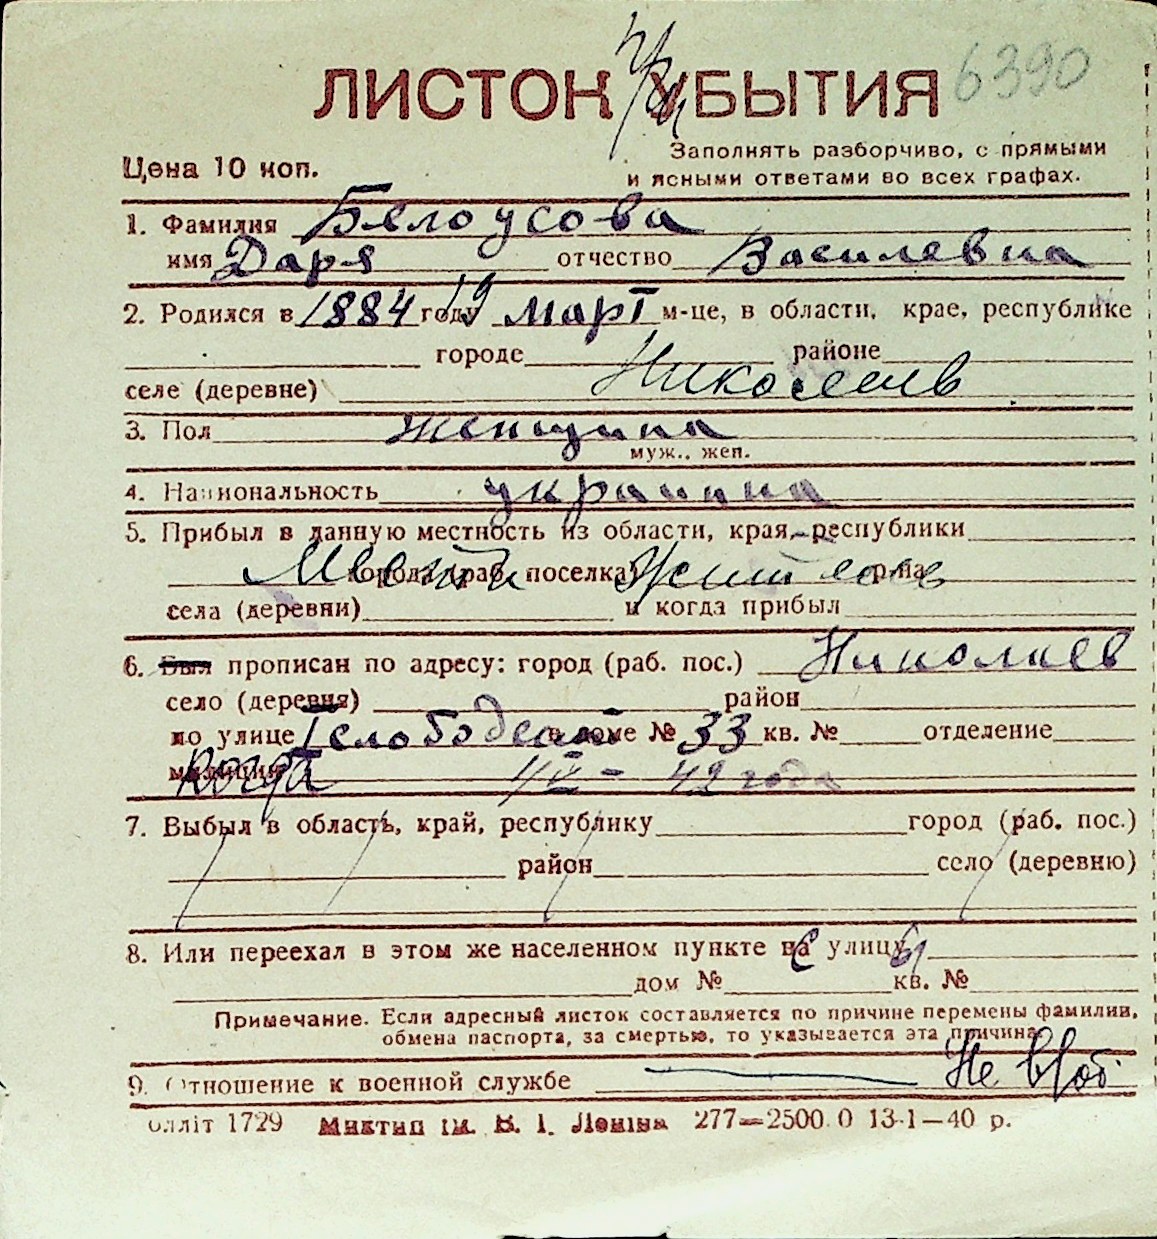 6390
ЛИСТОК УБЫТИЯ
Цена 10 коп.
Заполнять разборчиво, с прямыми
и ясными ответами во всех графах.
1. Фамилия Белоусова
имя Даря отчество Василевна
2. Родился в 1884 году 19 март м-це, в области, крае, республике
городе районе
селе (деревне) Николаев
3. Пол женщина
муж., жен.
4. Национальность украинка
5. Прибыл в данную местность из области, края, республики
Местн города (раб. поселка) Жител р-на
села (деревни) и когда прибыл
6. Был прописан по адресу: город (раб. пос.) Николаев
село (деревня) район
по улице в доме № 33 кв. № отделение
милиции когда 42 года
7. Выбыл в область, край, республику город (раб. пос.)
район село (деревню)
8. Или переехал в этом же населенном пункте на улицу
дом № кв. №
Примечание. Если адресный листок составляется по причине перемены фамилии,
обмена паспорта, за смертью, то указывается эта причина.
9. Отношение к военной службе Не в/об.
олліт 1729 Миктип ім. В. І. Леніна 277—2500.0 13-1—40 р.